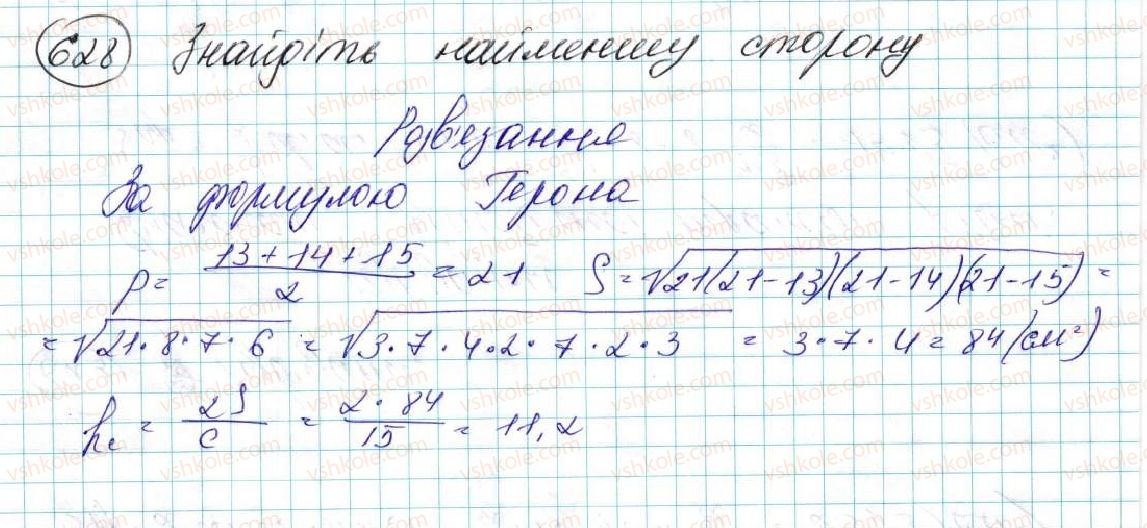 628 Знайдіть найменшу сторону
Розв'язання
За формулою Герона
p = \frac{13+14+15}{2} = 21 S = \sqrt{21(21-13)(21-14)(21-15)} =
= \sqrt{21·8·7·6} = \sqrt{3·7·4·2·7·2·3} = 3·7·4 = 84 (см²)
h_c = \frac{2S}{c} = \frac{2·84}{15} = 11,2